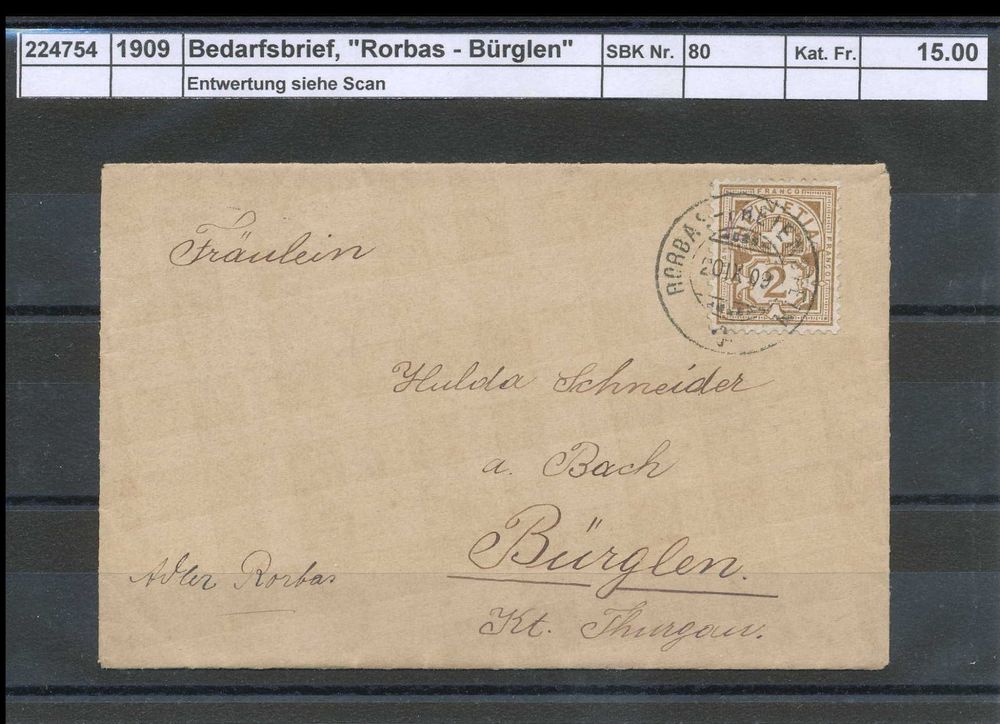 224754 1909 Bedarfsbrief, "Rorbas - Bürglen" SBK Nr. 80 Kat. Fr. 15.00
Entwertung siehe Scan
FRANCO
HELVETIA
FRANCO
2
RORBAS
20 IX 09
Fräulein
Hulda Schneider
a. Bach
Bürglen.
Kt. Thurgau.
Adler Rorbas